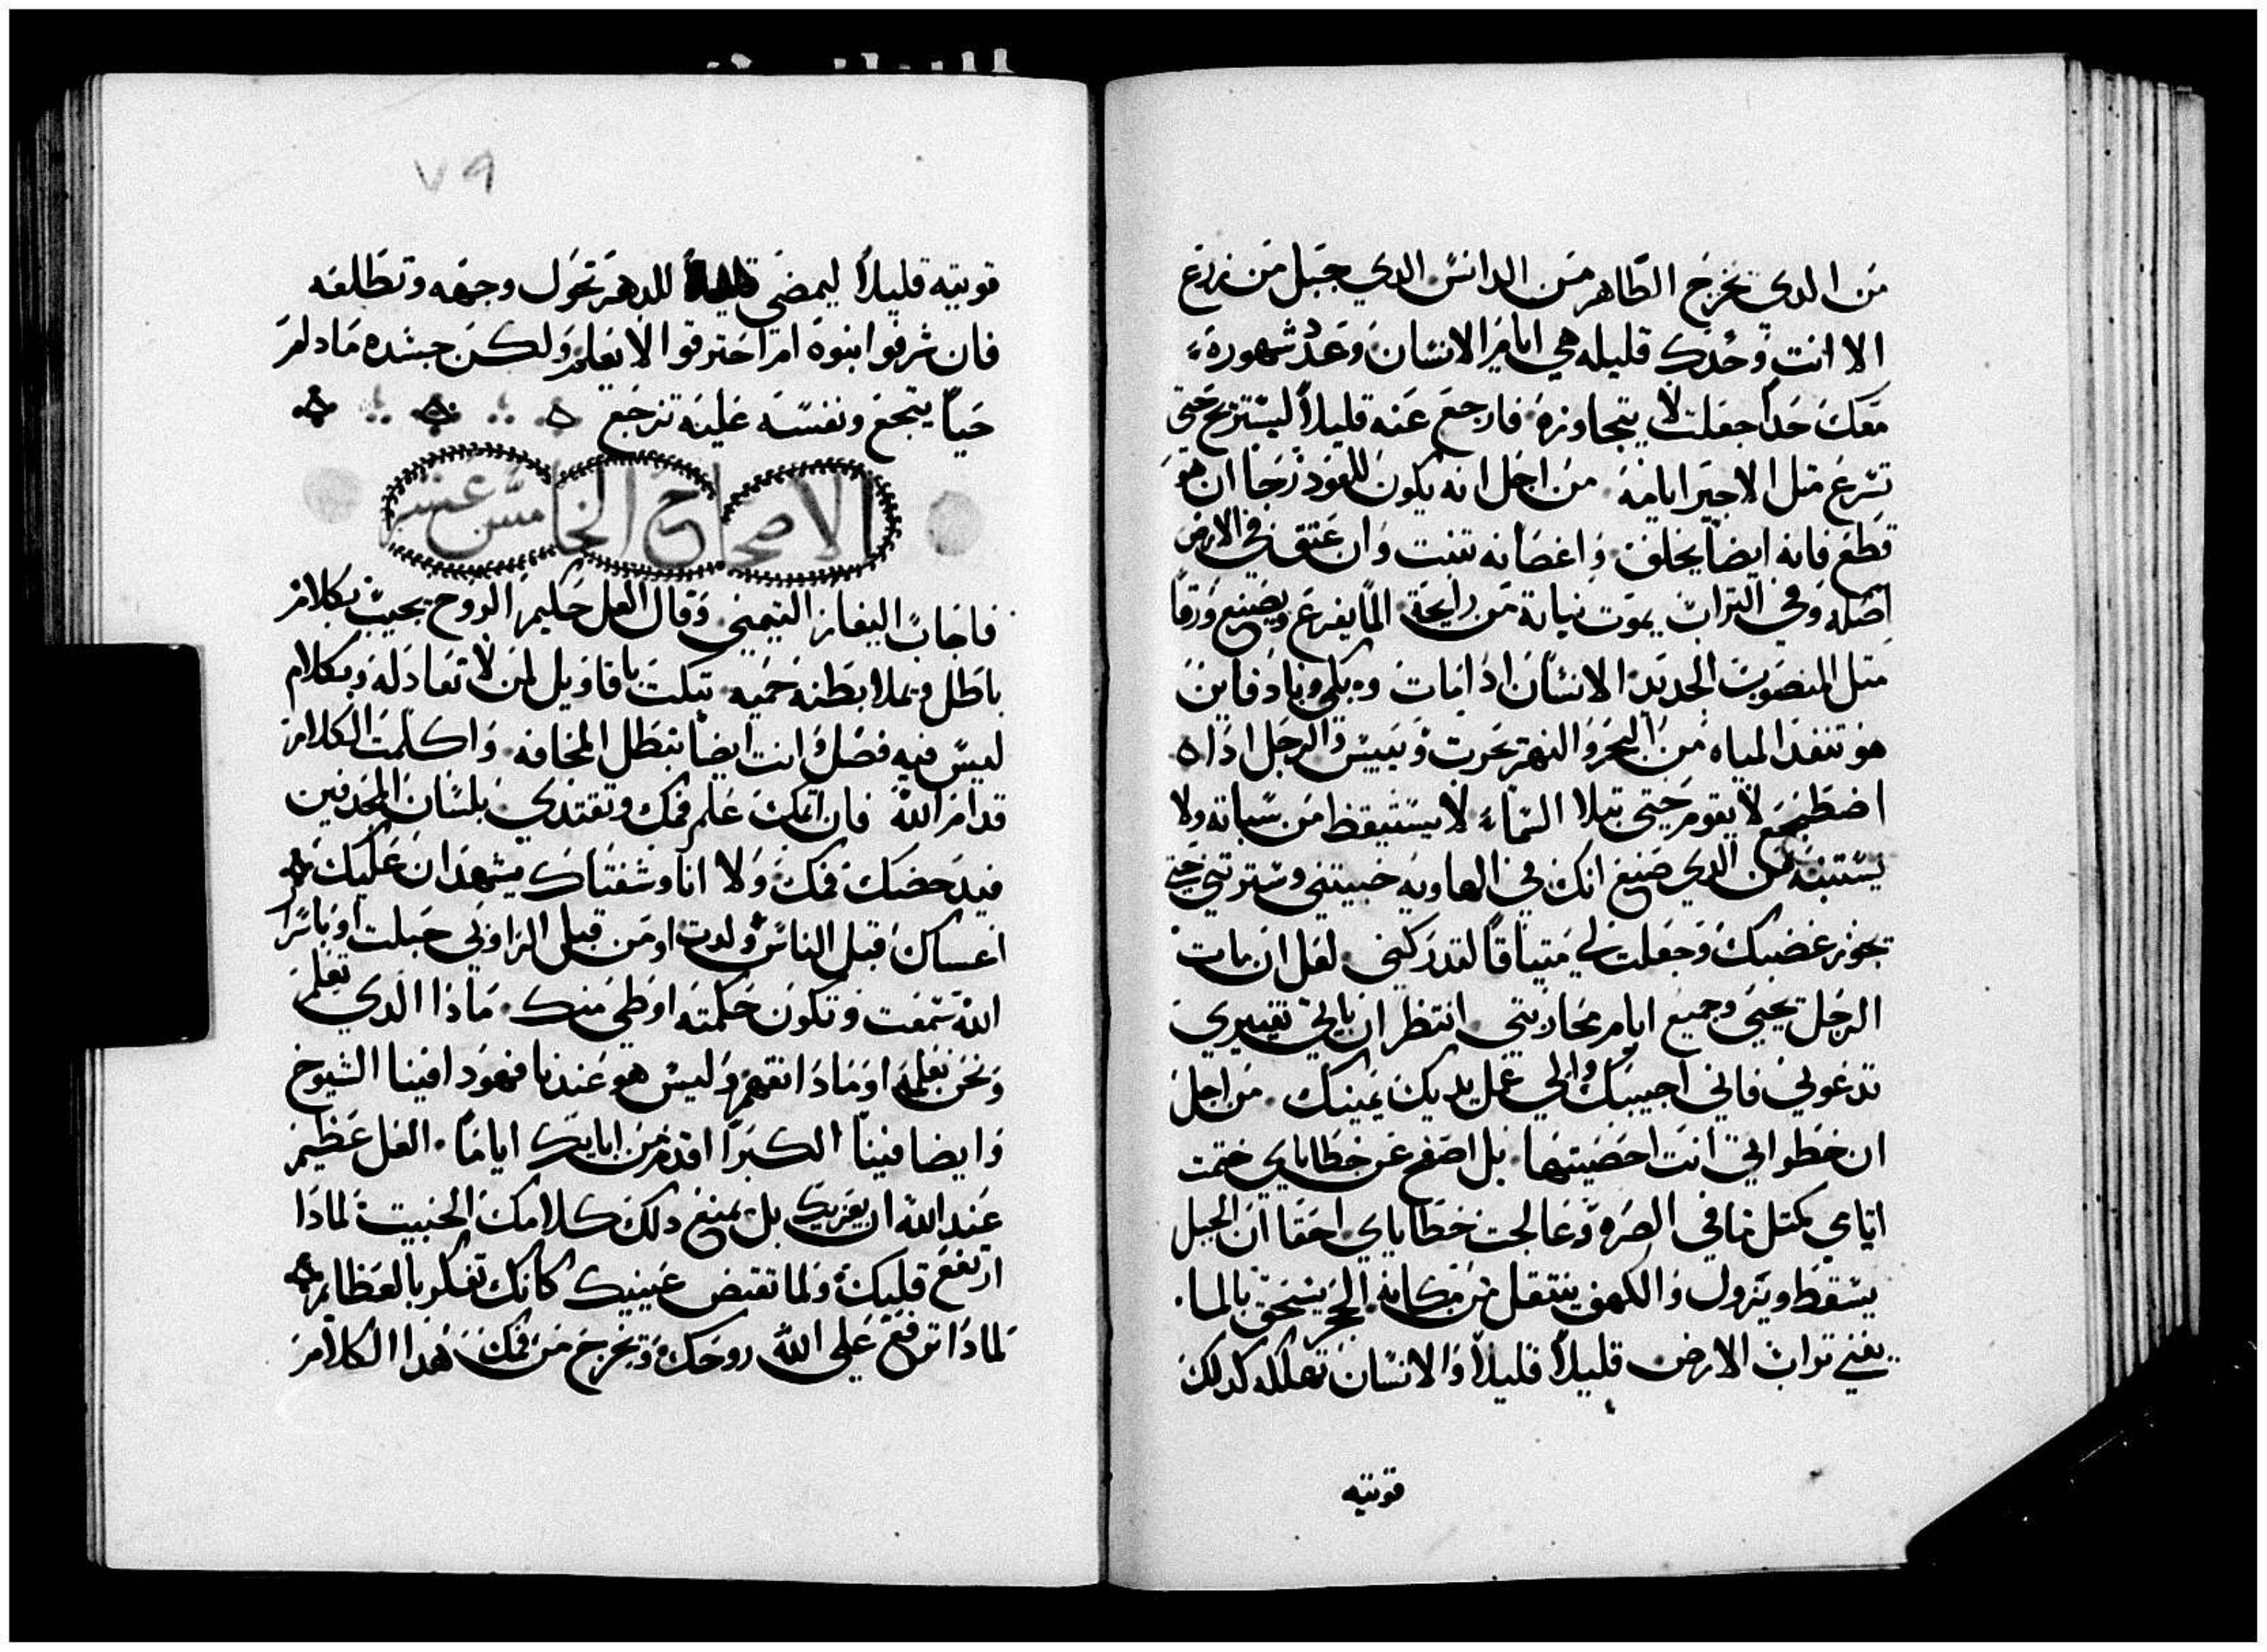 من الدي يخرج الطاهر من الدانس الدي جبل من زرع
الا انت وحدك قليله هي ايام الانسان وعدد شهوره
معك حداً جعلت لا يتجاوزه فارجع عنه قليلاً ليستريح حتى
تسرع متل الاجير ايامه من اجل انه يكون للعود رجا ان هو
قطع فانه ايضاً يخلف واغصانه تنبت وان عتق في الارض
اصله وفي التراب يموت نباته من رايحة الما يفرع ويصنع ورقاً
متل المنصوب الجديد الانسان ادا مات وبلي وباد فاين
هو تنفد المياه من البحر والنهر يحرت وييبس والرجل ادا
اضطجع لا يقوم حتى تبلا السماء لا يستيقظ من سباته ولا
يستنبه من الدي صنع انك في الهاويه خبيتني وسترتني حتى
يجوز غضبك وجعلت لي ميتاقاً لتدركني لعل ان مات
الرجل يحيى وجميع ايام محاربتي انتظر ان ياتي تغييري
تدعوني فاني اجيبك والي عمل يديك يمينك من اجل
ان خطواتي انت احصيتها بل اصفح عن خطاياي ختمت
اتامي كمتل ما في الصره وعالجت خطاياي احقا ان الجبل
يسقط ويزول والكهف ينتقل من مكانه الحجر ينسحق بالما
يفني تراب الارض قليلاً قليلاً والانسان تهلكه كدلك
قويته
٧٩
قويته قليلاً ليمضي للدهر تحول وجهه وتطلعه
فان شرفوا بنوه ام احترقوا لا يعلم ولكن جسده مادام
حياً يتجع ونفسه عليه ترجع
الاصحاح الخامس عشر
فاجاب اليفاز التيمني وقال العل حليم الروح يجيب بكلام
باطل ويملا بطنه حميه تبكت باقاويل لمن لا تعادله وبكلام
ليس فيه فضل وانت ايضاً تبطل المخافه واكلمت الكلام
قدام الله فان اتمك علم فمك وتقتدي بلسان المجدفين
فيدحضك فمك ولا انا وشفتاك يشهدان عليك
اعساك قبل الناس ولدت او من قبل الزاوبي جبلت اوباسرار
الله سمعت وتكون حكمته اوطي منك ماذا الدي تعلم
ونحن نعلمه او مادا تفهم وليس هو عندنا فهودا فينا الشيوخ
وايضا فينا الكبرا اقدم من ابايك اياماً العل عظيم
عند الله ان يعزيك بل يمنع دلك كلامك الخبيت لمادا
ارتفع قلبك ولما تغتض عينيك كانك تفكر بالعظايم
لمادا ترفع علي الله روحك وتخرج من فمك هدا الكلام